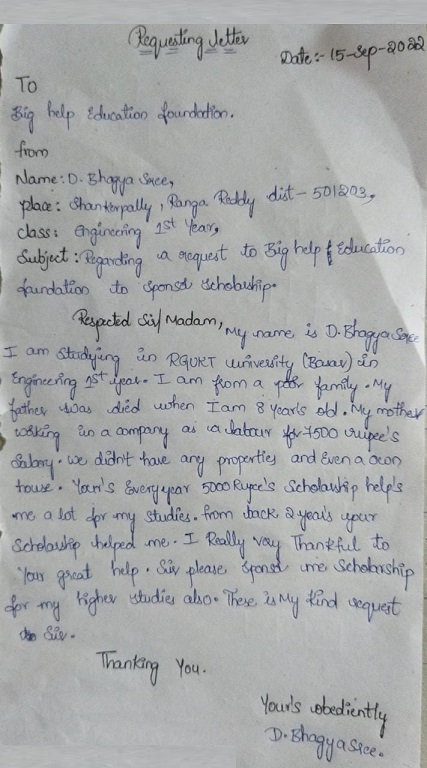 Requesting letter
Date:- 15-Sep-2022
To
Big help Education foundation.
from
Name: D. Bhagya Sree,
place: Shankerpally, Ranga Reddy dist - 501203,
class: Engineering 1st Year,
Subject: Regarding a request to Big help Education
foundation to sponsor scholarship.
Respected Sir/Madam, My name is D. Bhagya Sree
I am studying in RGUKT university (Basar) in
Engineering 1st year. I am from a poor family. My
father was died when I am 8 years old. My mother
working in a company as a labour for 7500 rupee's
Salary. we didn't have any properties and Even a own
house. Your's Every year 5000 Rupee's Scholarship help's
me a lot for my studies. from back 2 years your
Scholarship helped me. I Really very Thankful to
Your great help. Sir please sponsor me Scholarship
for my higher studies also. These is My kind request
to Sir.
Thanking You.
Your's obediently
D. Bhagya Sree.